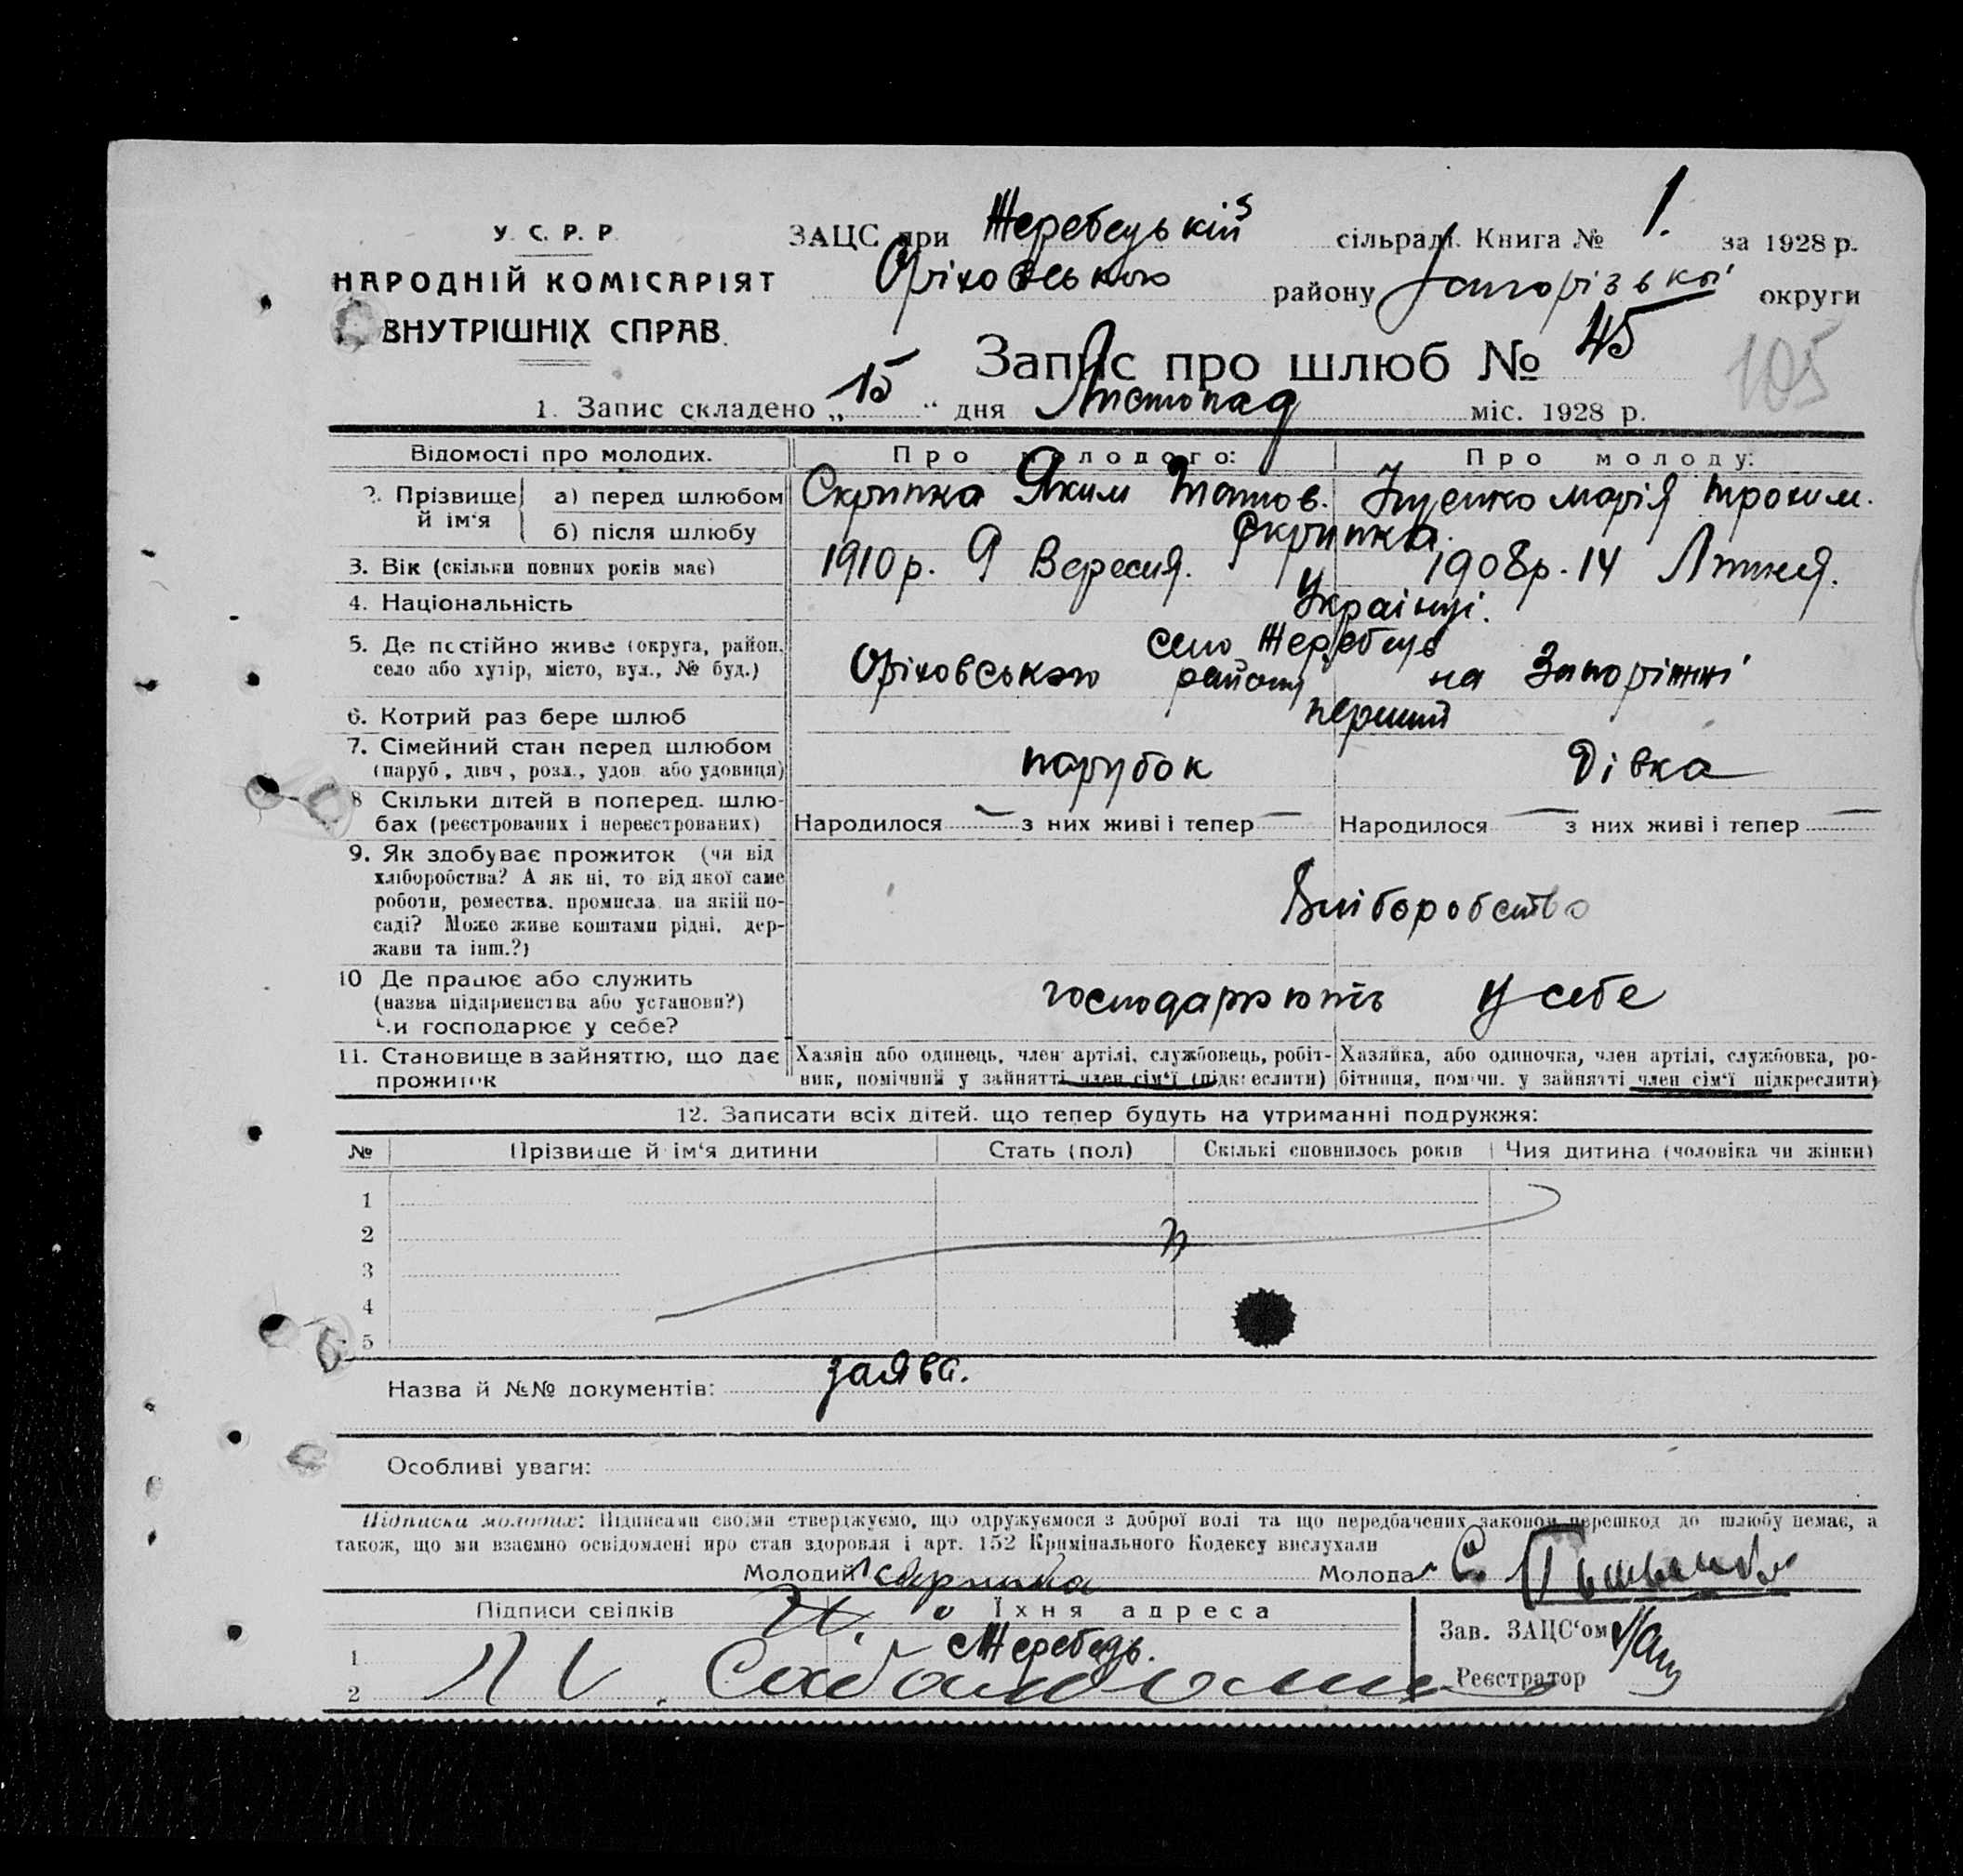 У. С. Р. Р.
НАРОДНІЙ КОМІСАРІЯТ
ВНУТРІШНІХ СПРАВ.
ЗАЦС при Жеребецькій сільраді. Книга № 1. за 1928 р.
Оріховського району Запорізької округи
Запис про шлюб № 45
105
1. Запис складено „15“ дня Листопад міс. 1928 р.
Відомості про молодих. Про молодого: Про молоду:
2. Прізвище й ім‘я а) перед шлюбом Скрипка Яким Титов. Марія Троким.
б) після шлюбу Скрипка.
3. Вік (скільки повних років має) 1910 р. 9 Вересня. 1908 р. 14 Липня.
4. Національність Українці.
5. Де постійно живе (округа, район, село Жеребець
село або хутір, місто, вул., № буд.) Оріховського району на Запоріжжі
6. Котрий раз бере шлюб перший
7. Сімейний стан перед шлюбом
(паруб., дівч., розл., удов. або удовиця) парубок Дівка
8 Скільки дітей в поперед. шлю-
бах (реєстрованих і нереєстрованих) Народилося — з них живі і тепер — Народилося — з них живі і тепер —
9. Як здобуває прожиток (чи від
хліборобства? А як ні, то від якої саме
роботи, ремества, промисла, на якій по-
саді? Може живе коштами рідні, дер-
жави та інш.?)
Хліборобство
10 Де працює або служить
(назва підприємства або установи?)
Чи господарює у себе?
господарюють у себе
11. Становище в зайняттю, що дає прожиток
Хазяїн або одинець, член артілі, службовець, робіт-
ник, помічний у зайнятті член сім‘ї (підкреслити)
Хазяйка, або одиночка, член артілі, службовка, ро-
бітниця, помічн. у зайнятті член сім‘ї підкреслити)
12. Записати всіх дітей, що тепер будуть на утриманні подружжя:
№ Прізвище й ім‘я дитини Стать (пол) Скількі сповнилось років Чия дитина (чоловіка чи жінки)
1
2
3
4
5
Назва й №№ документів: заява.
Особливі уваги:
Підписки молодих: Підписами своїми стверджуємо, що одружуємося з доброї волі та що передбачених законом перешкод до шлюбу немає, а
також, що ми взаємно освідомлені про стан здоровля і арт. 152 Кримінального Кодексу вислухали
Молодий Скрипка Молода
Підписи свідків Їхня адреса
Зав. ЗАЦС‘ом
1 Жеребець.
Реєстратор
2